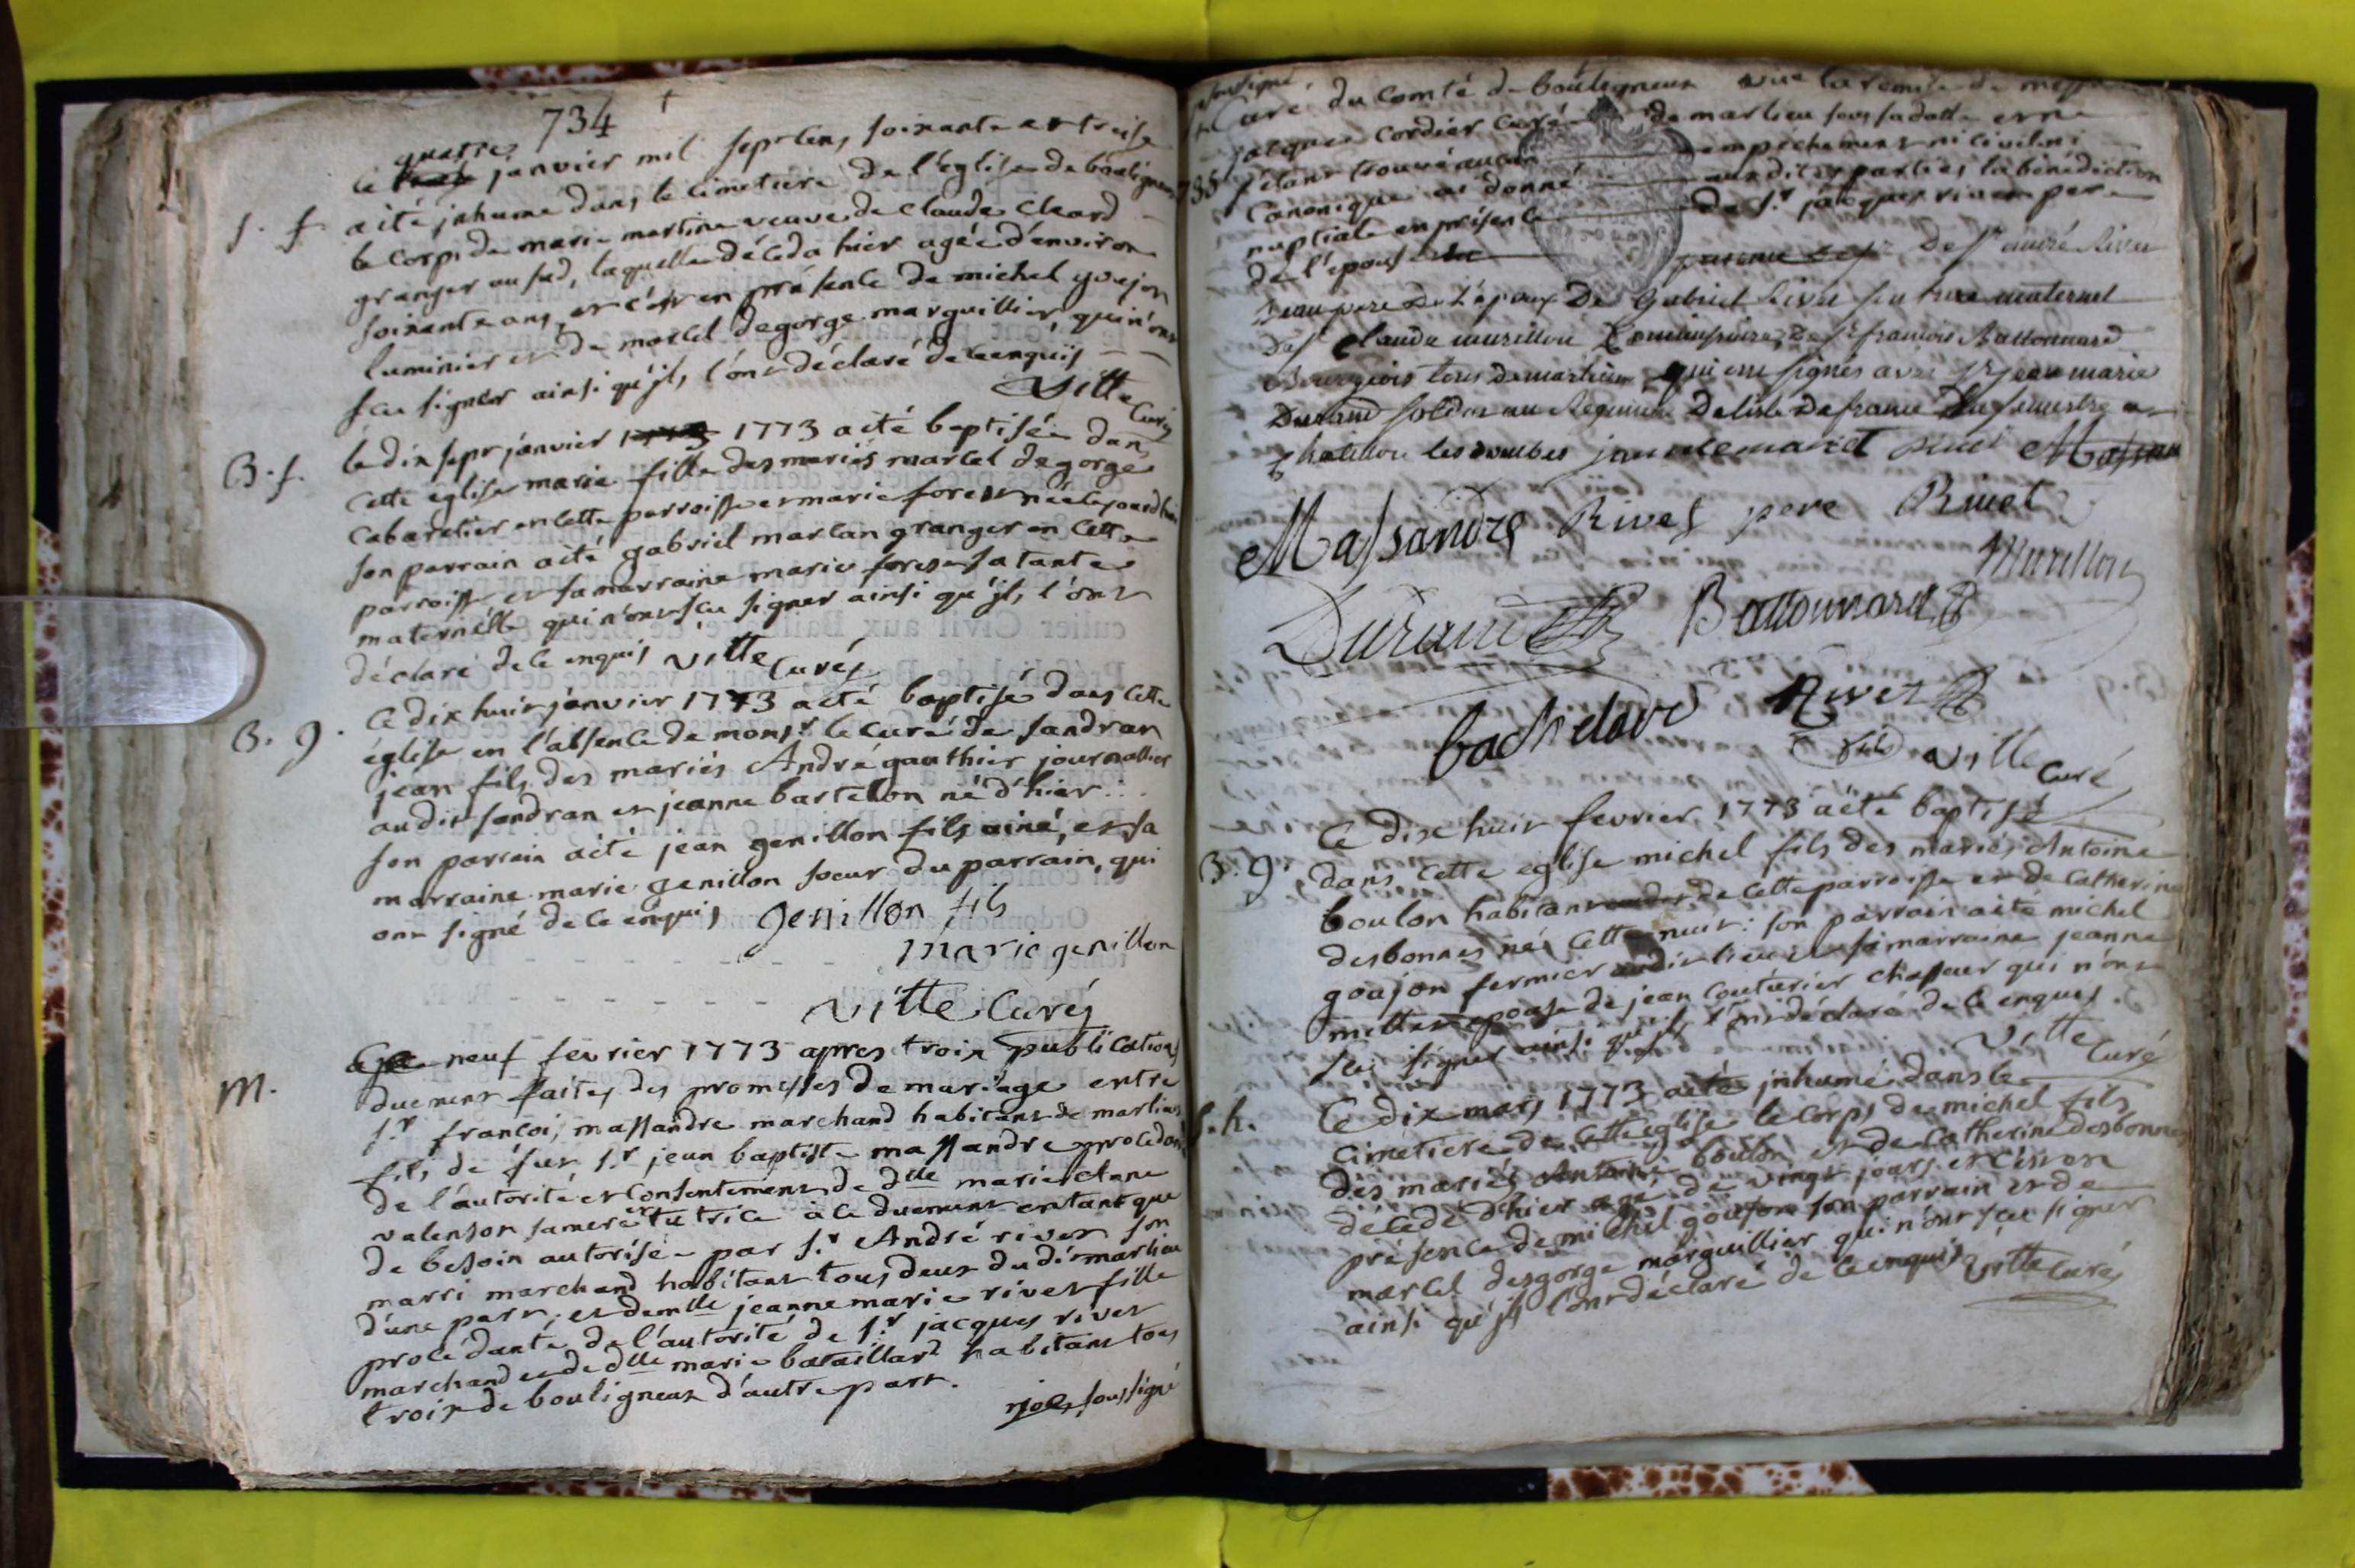 734
quatre
Ce trois janvier mil sept cens soixante et treise
S. f a été inhumé dans le cimetiere de l'église de bouligneux
le corps de marie martine veuve de claude cleard
granger au sud, laquelle déceda hier agée d'environ
soixante ans, et c'est en présence de michel goujon
luminier et de marcel degorge marguillier qui n'ont
sçu signer ainsi qu'jls l'ont déclaré de ce enquis
Vitte Curé
B. f. le dix sept janvier 1773 1773 a été baptisée dans
cette église marie fille des mariés marcel degorge
Cabaretier en cette parroisse et marie forest née le jourd'hui
son parrain a été gabriel marlan granger en cette
parroisse et sa marraine marie forest sa tante
maternelle qui n'ont sçu signer ainsi qu'jls l'ont
déclaré de ce enquis Vitte Curé
B. g. Ce dix huit janvier 1773 a été baptisé dans cette
église en l'absence de monsr le curé de sandran
jean fils des mariés André gauthier journallier
audit sandran et jeanne bartelon né d'hier
son parrain a été jean genillon fils ainé, et sa
marraine marie genillon soeur du parrain, qui
ont signé de ce enquis genillon fils
marie genillon
Vitte Curé
M. Ce neuf fevrier 1773 apres trois publications
duement faites des promesses de mariage entre
sr francois massandre marchand habitant de marlieux
fils de feu sr jean baptiste massandre procedant
de l'autorité et consentement de dlle marie Anne
valenson sa mere et tutrice a ce duement entant que
de besoin autorisée par sr André rivet son
marri marchand habitant tous deux dudit marlieu
d'une part, et demlle jeanne marie rivet fille
procedante de l'autorité de sr jacques rivet
marchand et de dlle marie bataillard habitant tous
trois de bouligneux d'autre part.
soussigné
soussigné
Curé du comté de bouligneux vue la remise de messr
jacques cordier curé de marlieu sous sa datte et ne
735 s'étant trouvé aucun empéchement ni civil ni
Canonique ai donné auxdites parties la bénédiction
nuptiale en présence de sr jacques rivet pere
de l'epouse de sr andré Rivet
beau pere de l'epoux de Gabriel Rivet son frere uterinel
de sr claude murillon Commissaire, de sr francois Battonnard
Bourgeois tous de marlieux qui ont signés avec sr jean marie
Durand soldat au Regiment de lisle de france en semestre a
Chatillon les dombes jeanne marie rivet Massan
Massandre Rivet pere Rivet
Murillon
Durand Battonnard
bachelard Rivet
Vitte Curé
B. g. Ce dix huit fevrier 1773 a été baptisé
dans cette eglise michel fils des mariés Antoine
boulon habitant de cette parroisse et de Catherine
desbonnes né cette nuit: son parrain a été michel
goujon fermier audit lieu et sa marraine jeanne
millet epouse de jean couturier chasseur qui n'ont
sçu signer ainsi qu'jls l'ont déclaré de ce enquis.
Vitte Curé
S. h. Ce dix mars 1773 a été inhumé dans le
Cimetiere de cette eglise le corps de michel fils
des mariés Antoine boulon et de Catherine desbonnes
décédé d'hier agé de vingt jours et c'est en
présence de michel goujon son parrain et de
marcel desgorge marguillier qui n'ont sçu signer
ainsi qu'jls l'ont déclaré de ce enquis Vitte Curé